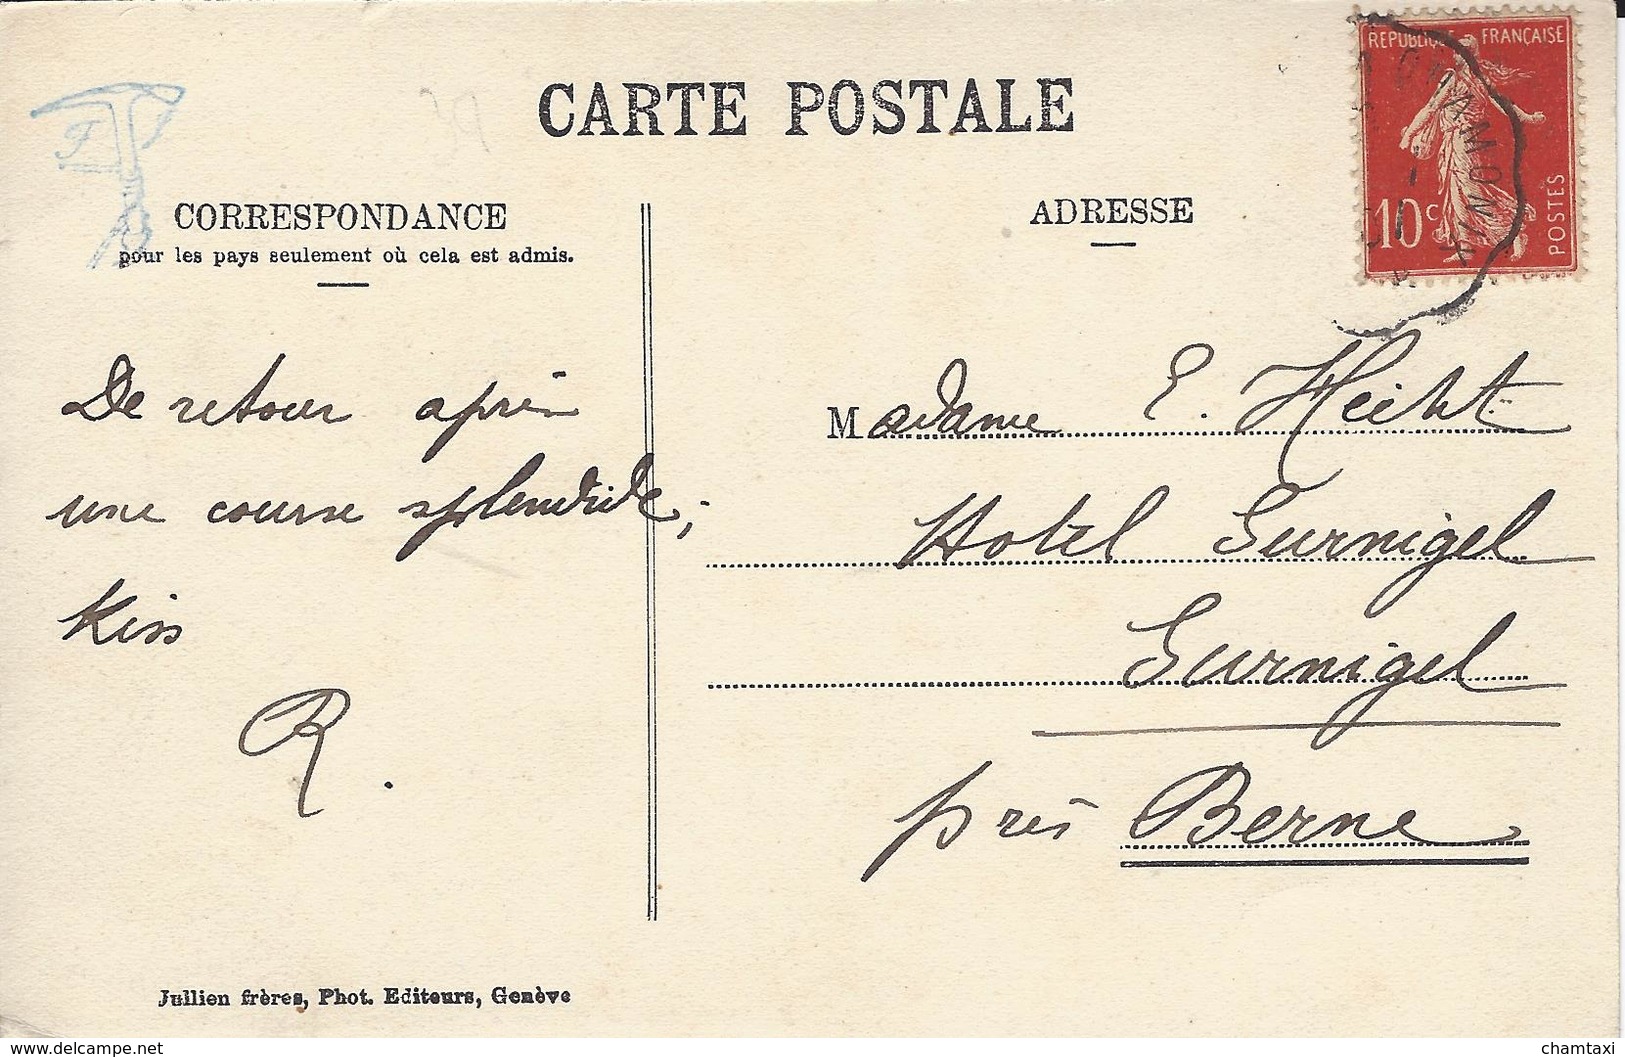 CARTE POSTALE
RÉPUBLIQUE FRANÇAISE
10c
POSTES
CHAMONIX
F
CORRESPONDANCE
pour les pays seulement où cela est admis.
De retour après
une course splendide,
Kiss
R.
ADRESSE
Madame E. Hecht
Hotel Gurnigel
Gurnigel
près Berne
Jullien frères, Phot. Editeurs, Genève
https://www.delcampe.net
chamtaxi